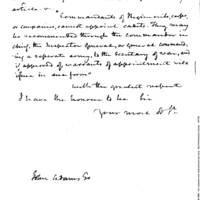 article. v.
"Commandants of Regiments, corps,
or companies, cannot appoint cadets. They may
be recommended through the commander in
chief, the Inspector General, or general command-
ing a seperate army, to the Secretary of war, and
if approved of warrants of appointment will
issue in due form"
with the greatest respect
I have the honour to be Sir
Your most
John Adams Esq